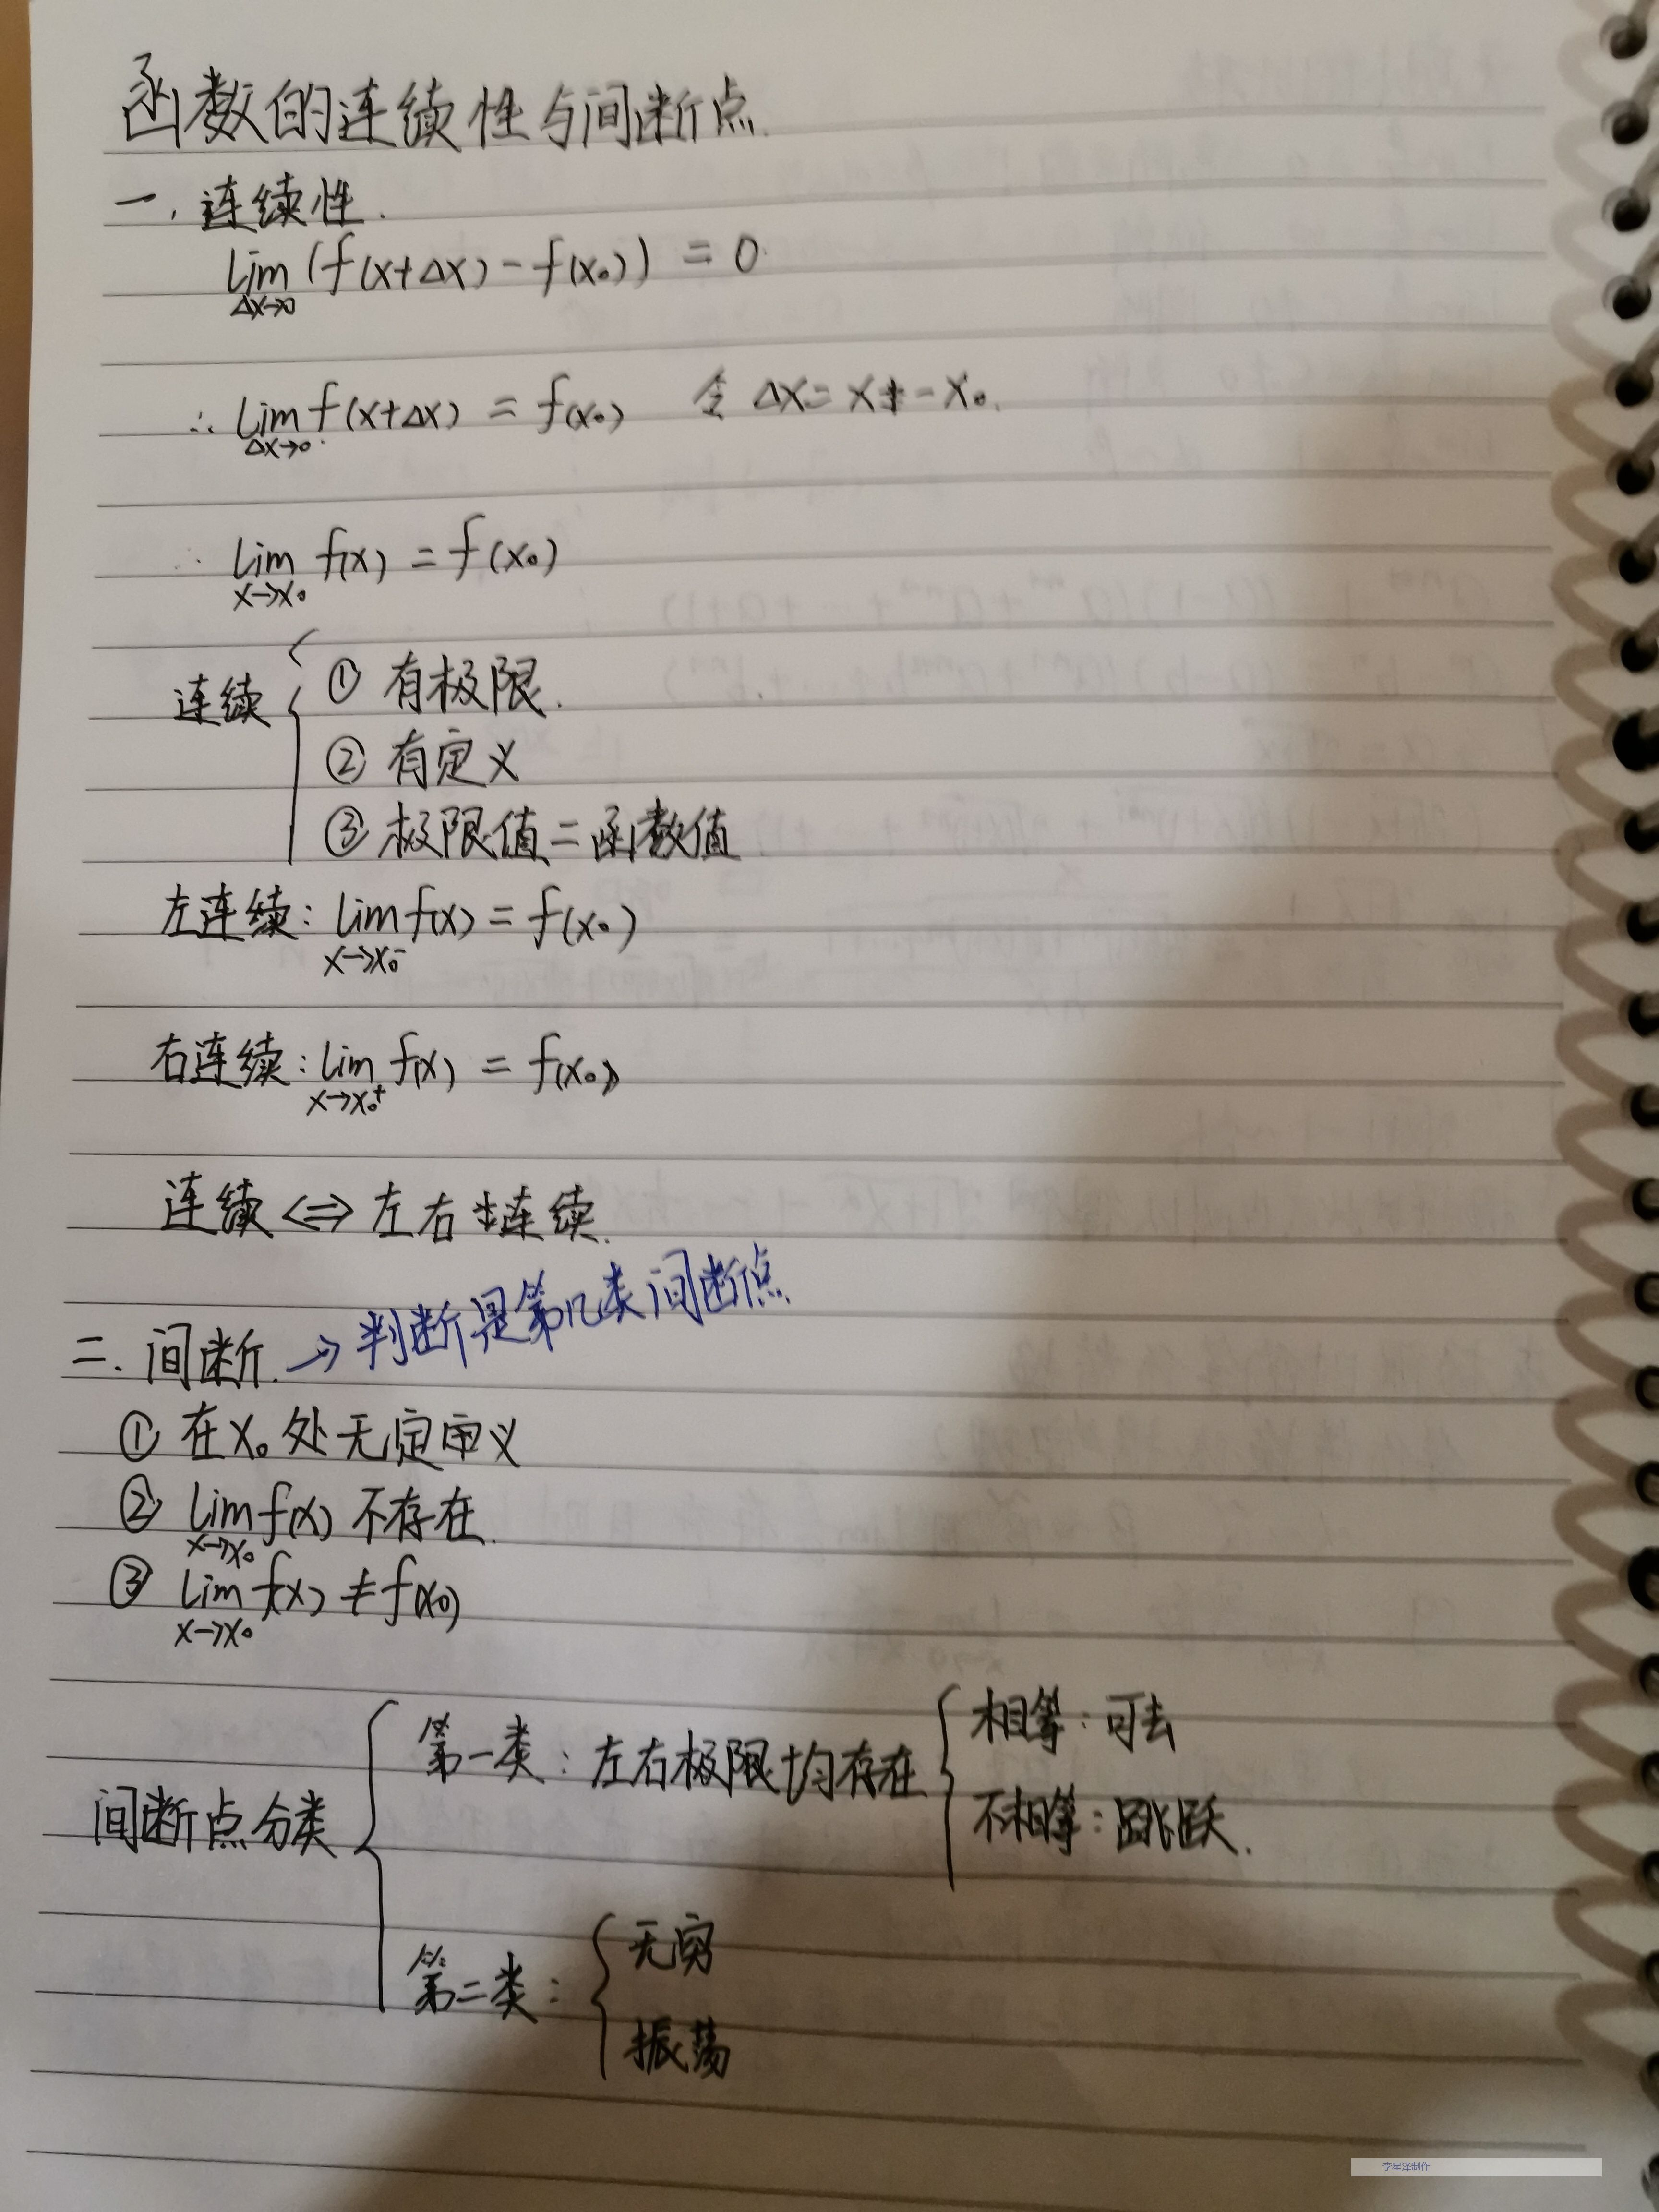 函数的连续性与间断点.
一、连续性.
lim (f(x+Δx)-f(x₀)) = 0
Δx→0
∴ lim f(x+Δx) = f(x₀) 令 Δx = x - x₀.
Δx→0
∴ lim f(x) = f(x₀)
x→x₀
连续 { ① 有极限.
② 有定义
③ 极限值 = 函数值
左连续: lim f(x) = f(x₀)
x→x₀⁻
右连续: lim f(x) = f(x₀)
x→x₀⁺
连续 <=> 左右连续.
二. 间断. → 判断是第几类间断点
① 在x₀处无定义
② lim f(x) 不存在.
x→x₀
③ lim f(x) ≠ f(x₀)
x→x₀
间断点分类 {
第一类: 左右极限均存在 { 相等: 可去
不相等: 跳跃.
第二类: { 无穷
振荡
李星泽制作